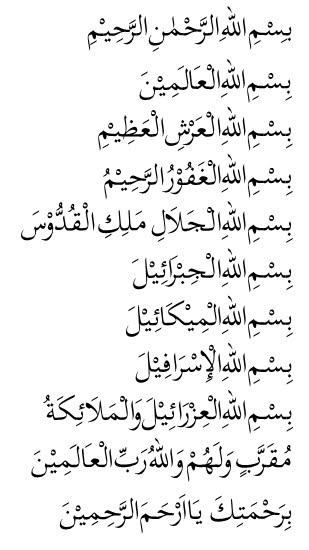 بِسْمِ اللهِ الرَّحْمٰنِ الرَّحِيْمِ
بِسْمِ اللهِ الْعَالَمِيْنَ
بِسْمِ اللهِ الْعَرْشِ الْعَظِيْمِ
بِسْمِ اللهِ الْغَفُوْرُ الرَّحِيْمُ
بِسْمِ اللهِ الْجَلَالِ مَلِكِ الْقُدُّوْسَ
بِسْمِ اللهِ الْجِبْرَائِيْلَ
بِسْمِ اللهِ الْمِيْكَائِيْلَ
بِسْمِ اللهِ الْإِسْرَافِيْلَ
بِسْمِ اللهِ الْعِزْرَائِيْلَ وَالْمَلَائِكَةُ
مُقَرَّبٍ وَلَهُمْ وَاللهُ رَبِّ الْعَالَمِيْنَ
بِرَحْمَتِكَ يَا اَرْحَمَ الرَّحِمِيْنَ